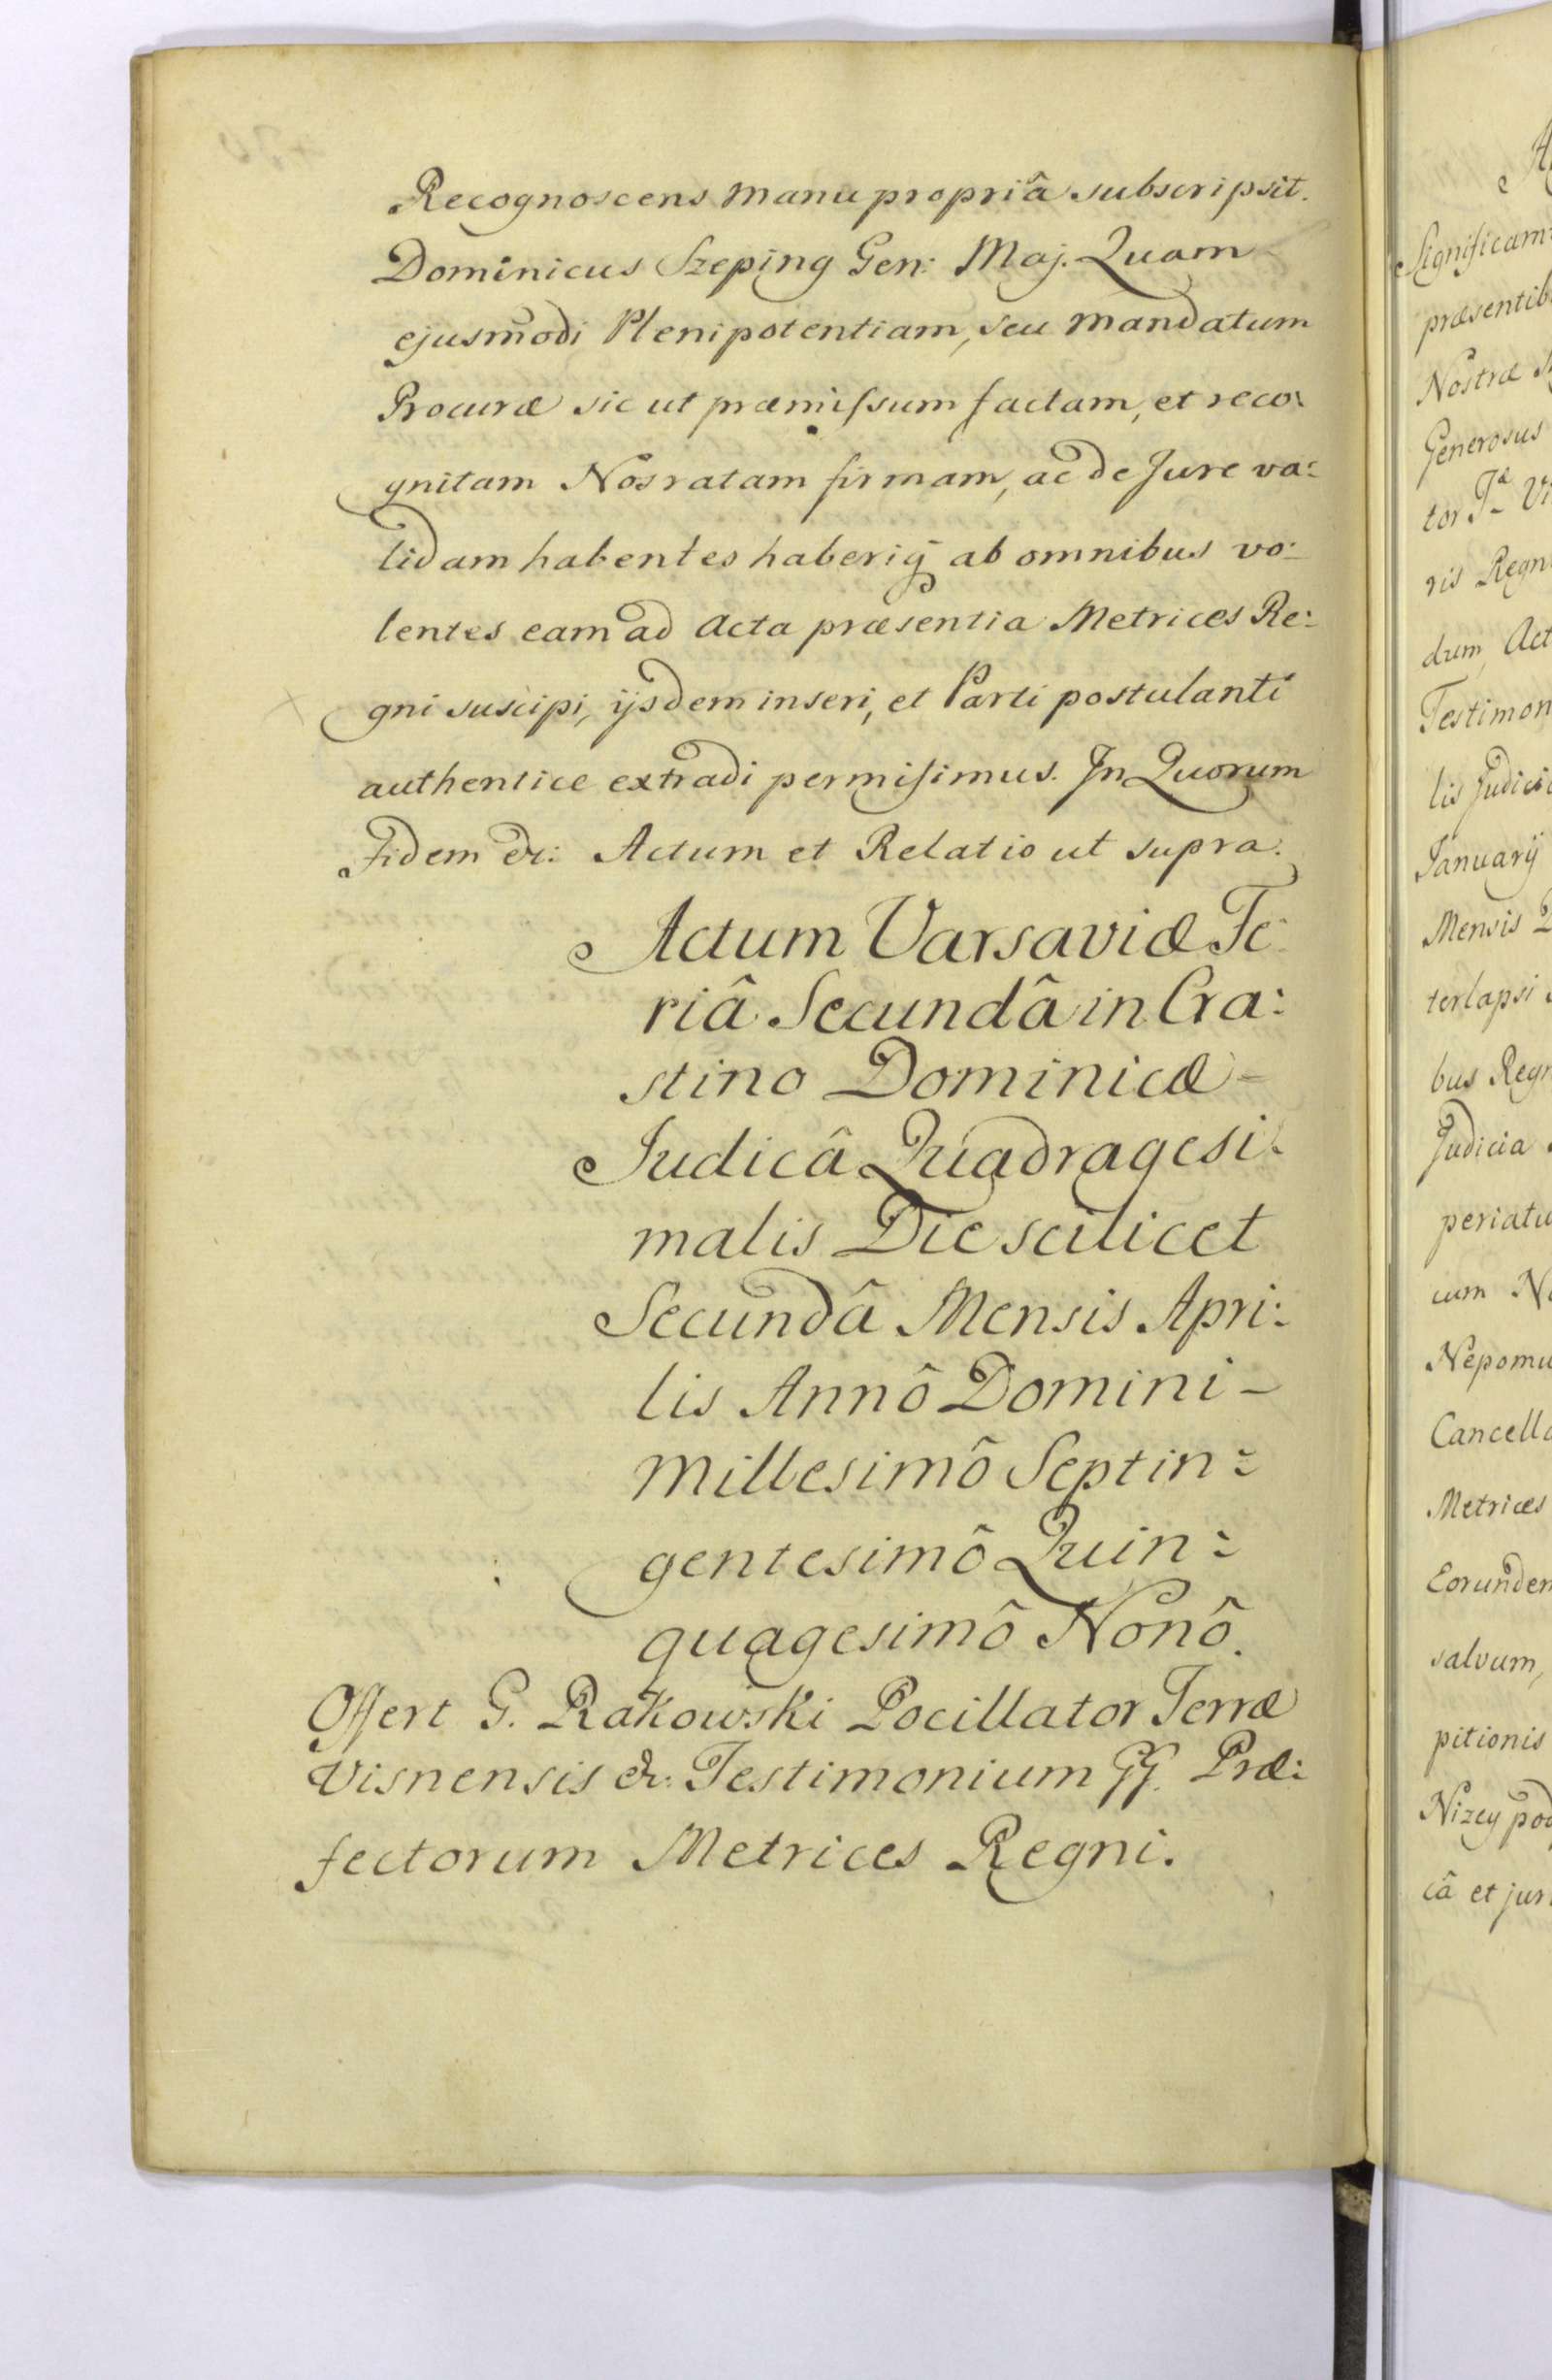 Recognoscens manu propriâ subscripsit.
Dominicus Szeping Gen: Maj. Quam
ejusmodi Plenipotentiam, seu Mandatum
Procuræ sic ut præmiſsum factam, et reco:
gnitam Nos ratam firmam, ac de Jure va:
lidam habentes haberiq̃ ab omnibus vo:
lentes eam ad Acta præsentia Metrices Re:
gni suscipi, ijsdem inseri, et Parti postulanti
authentice extradi permiſimus. In Quorum
Fidem &c: Actum et Relatio ut supra.
Actum Varsaviæ Fe:
riâ Secundâ in Cra:
stino Dominicæ -
Judicâ Quadragesi:
malis Die scilicet
Secundâ Mensis Apri:
lis Annô Domini -
Millesimô Septin:
gentesimô Quin:
quagesimô Nonô.
Offert G. Rakowski Pocillator Terræ
Visnensis &c: Testimonium GG. Præ:
fectorum Metrices Regni.
Significam:
præsentib
Nostræ
Generosus
tor
ris Regn
dum, Act
Testimon
lis Judici
Januarij
Mensis
terlapsi
bus Regn
Judicia
periatu
cum
Nepomu
Cancella
Metrices
Eorundem
salvum,
pitionis
Nizey pod
câ et jur